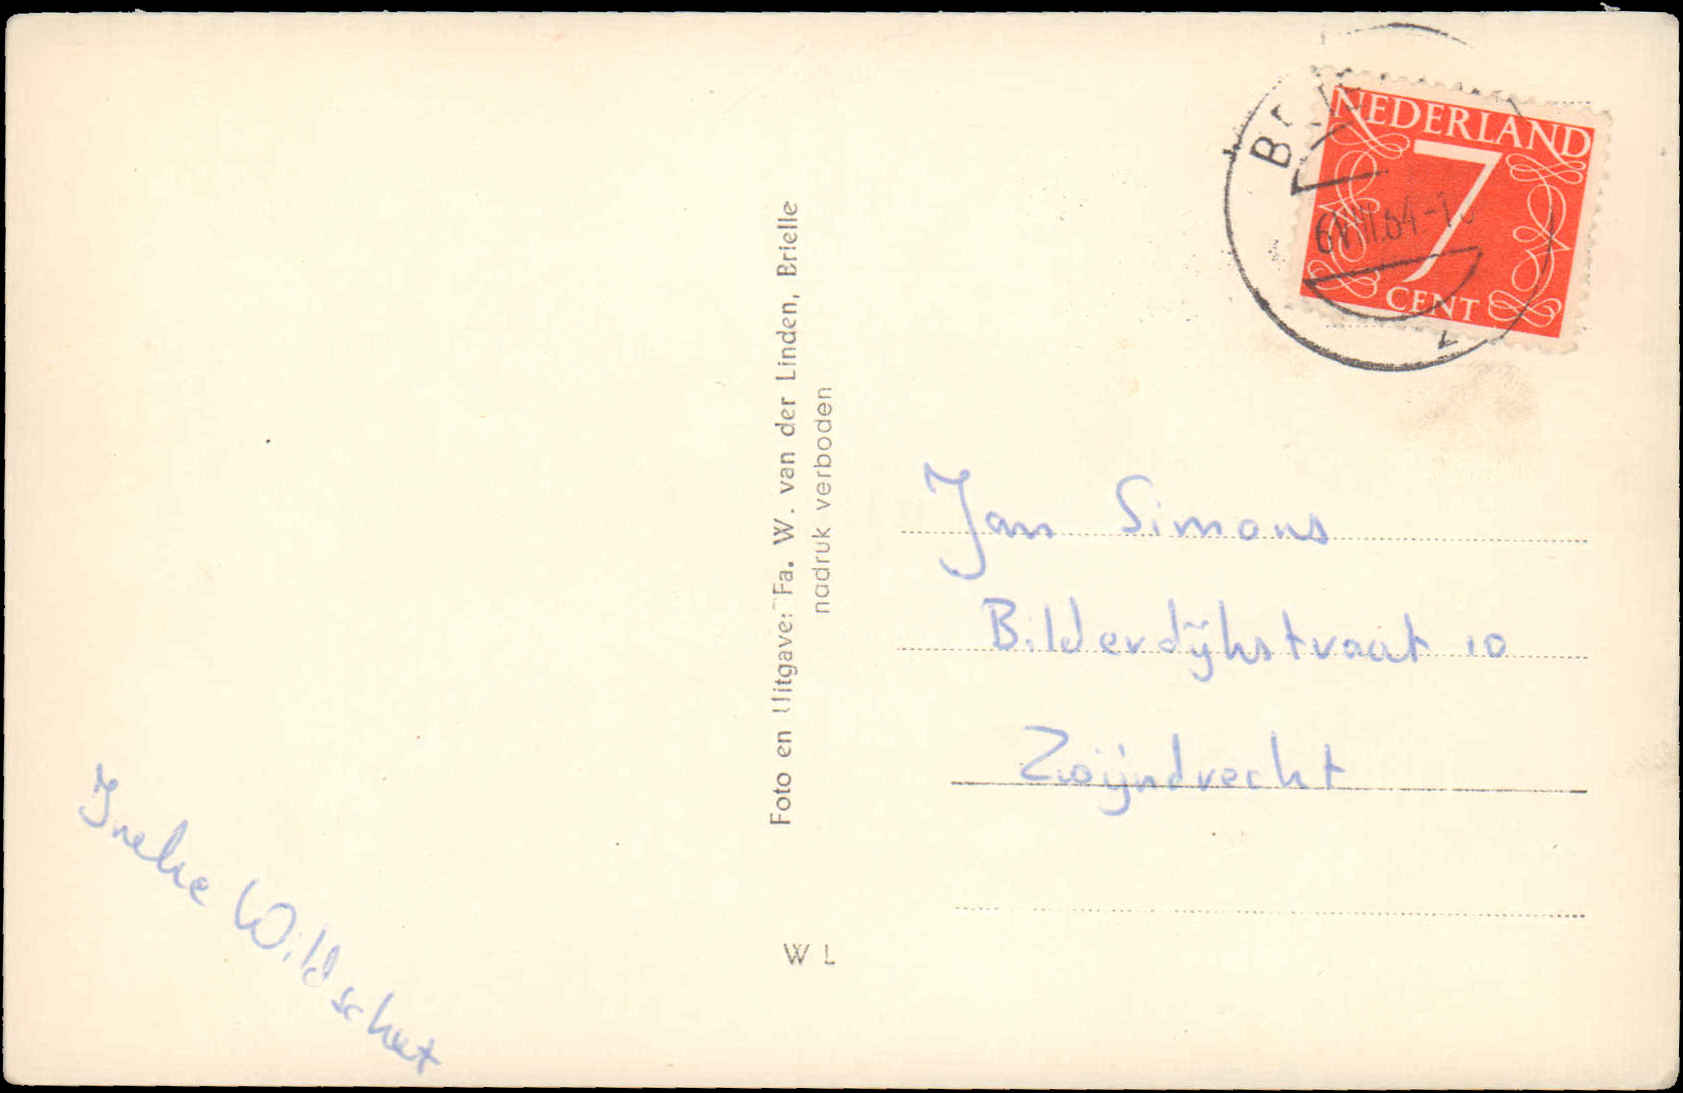 NEDERLAND
7
CENT
Foto en Uitgave: Fa. W. van der Linden, Brielle
nadruk verboden
Jan Simons
Bilderdijkstraat 10
Zwijndrecht
Ineke Wildschut
W L